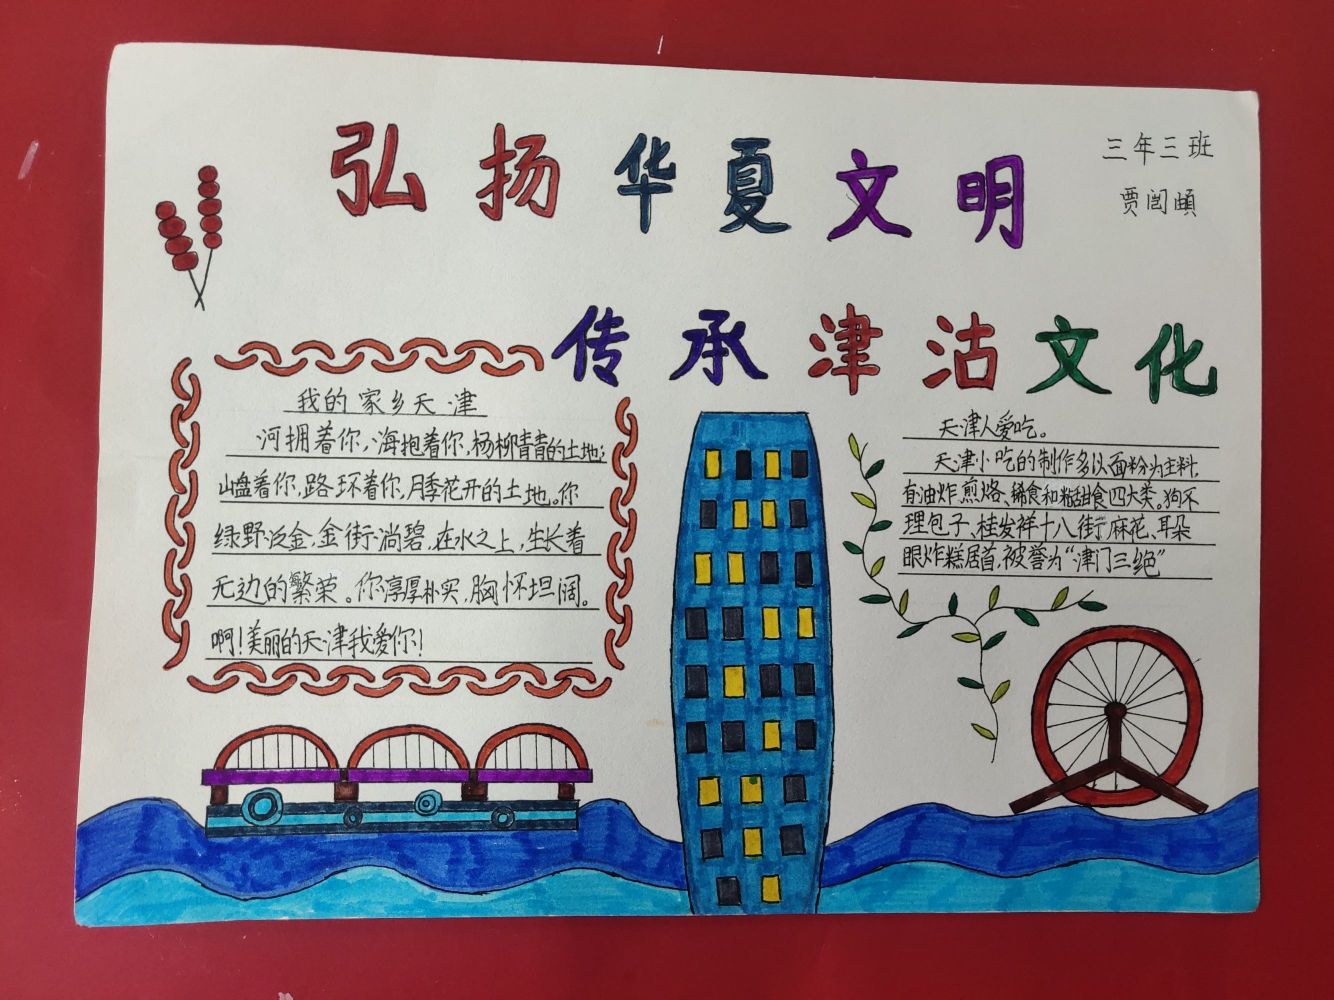 弘扬华夏文明
三年三班
贾闾頔
传承津沽文化
我的家乡天津
河拥着你,海抱着你,杨柳青青的土地;
山盘着你,路环着你,月季花开的土地。你
绿野泛金,金街淌碧,在水之上,生长着
无边的繁荣。你淳厚朴实,胸怀坦阔。
啊!美丽的天津我爱你!
天津人爱吃。
天津小吃的制作多以面粉为主料,
有油炸、煎烙、稀食和粘甜食四大类。狗不
理包子、桂发祥十八街麻花、耳朵
眼炸糕居首,被誉为“津门三绝”